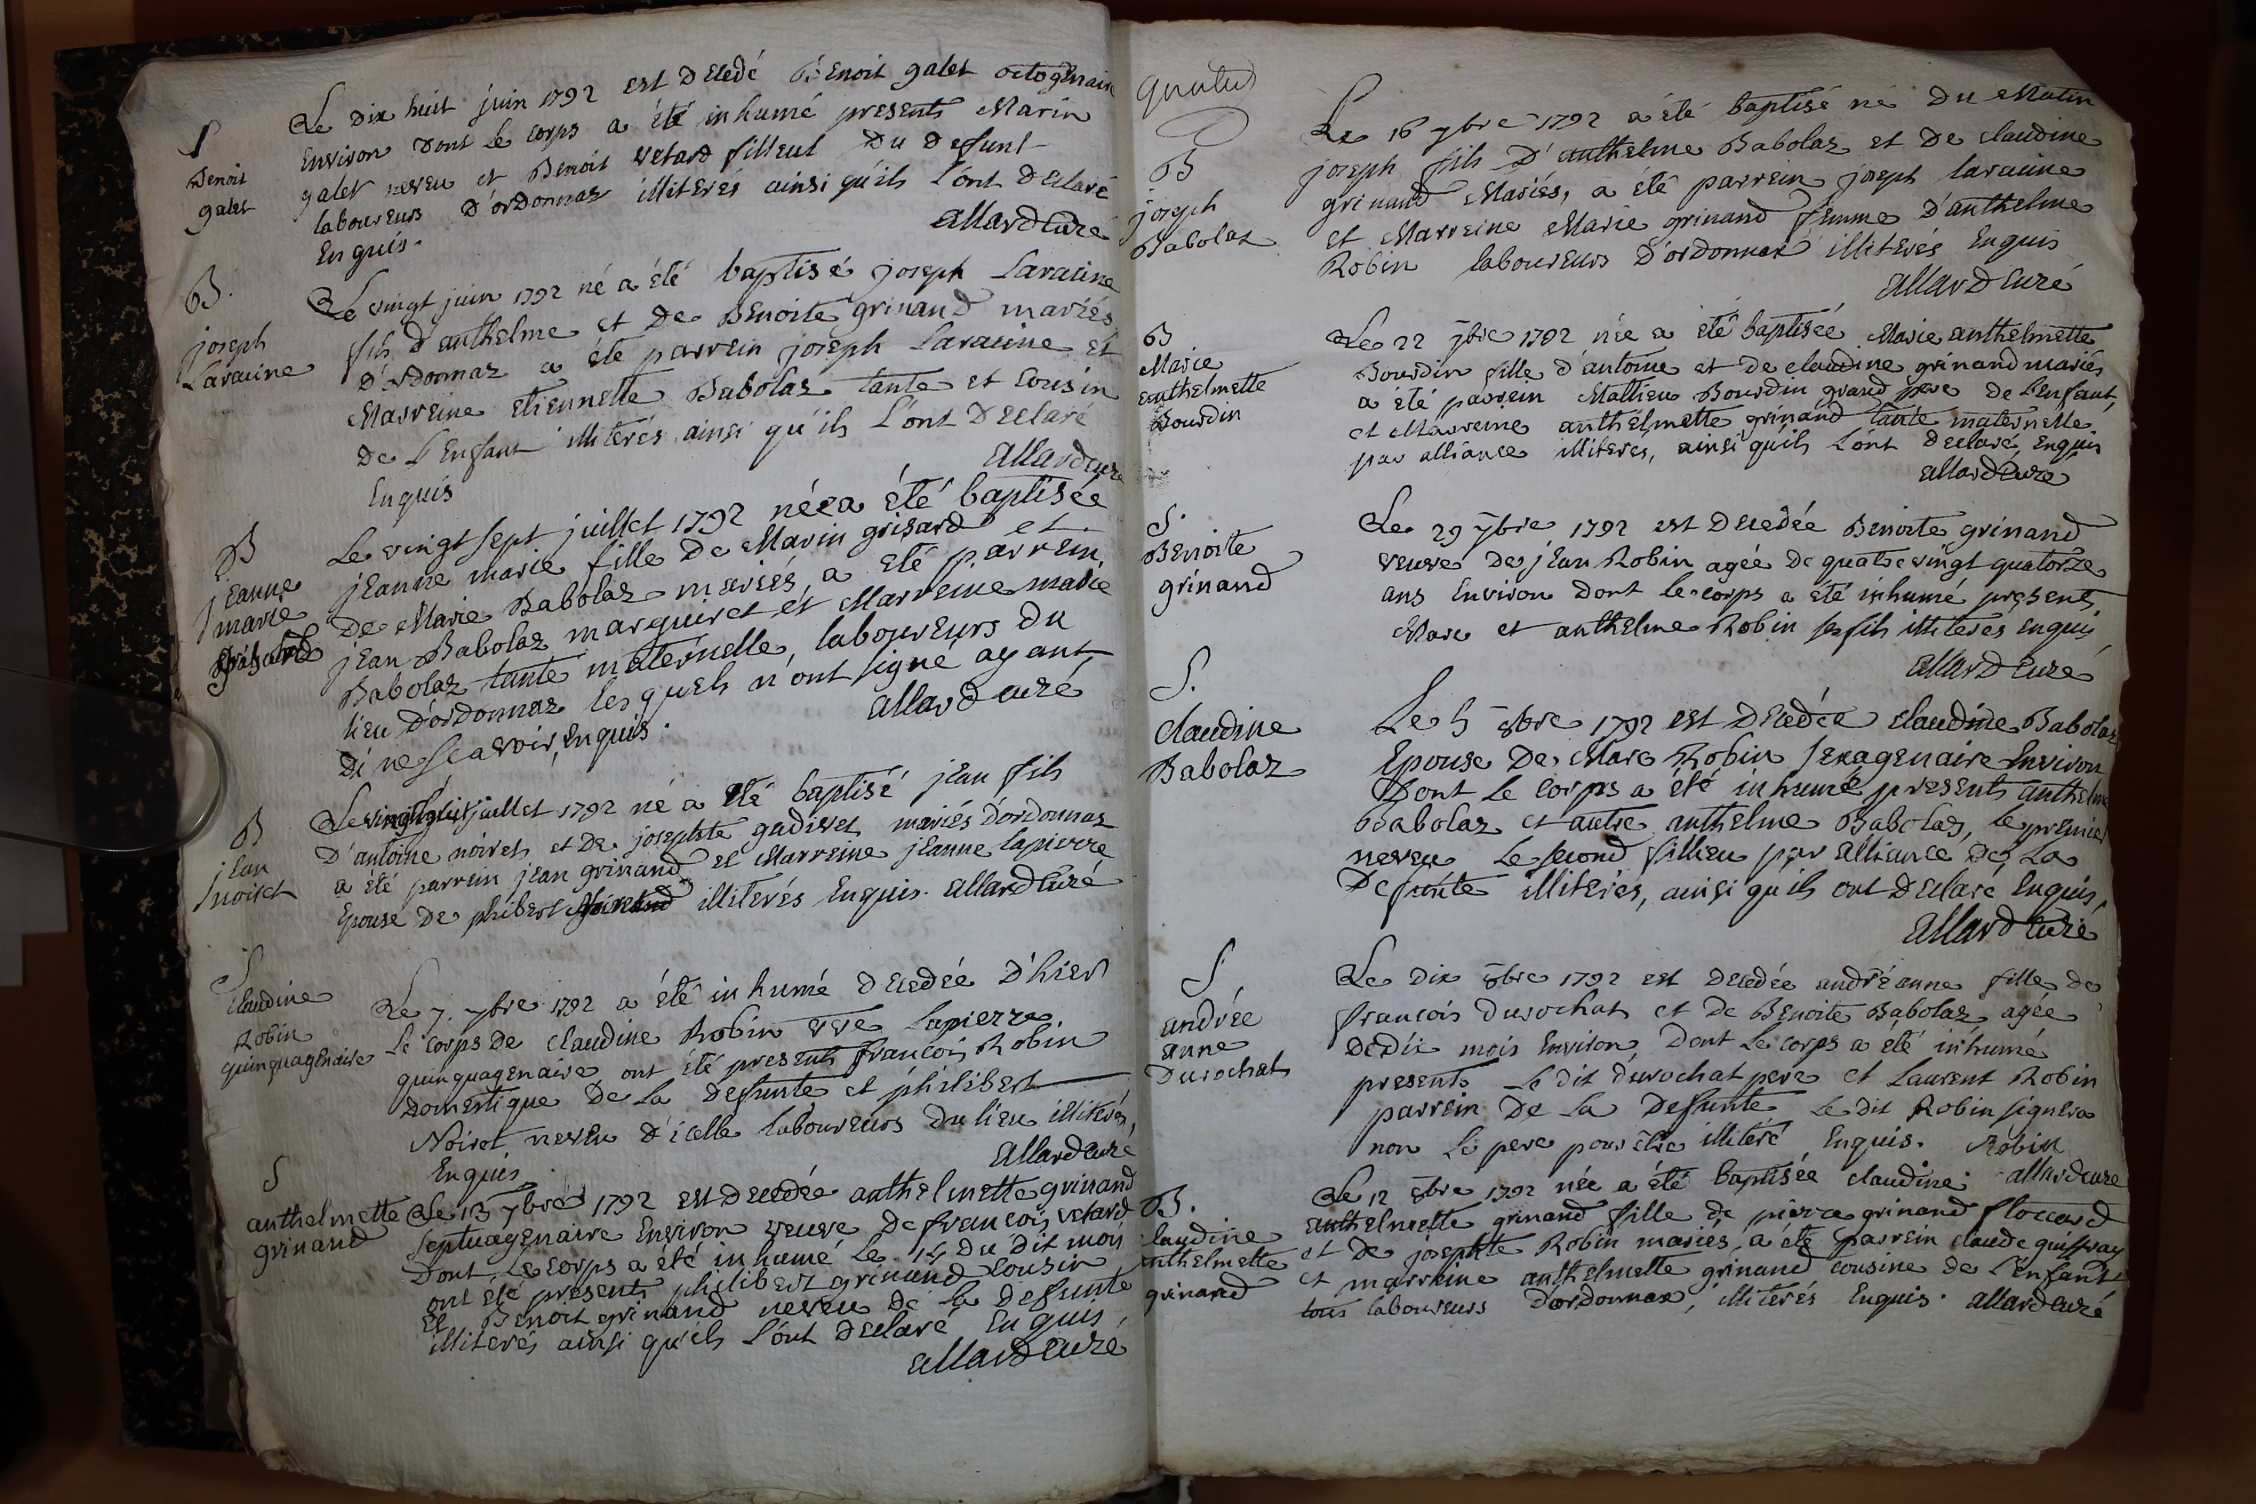 S
Benoit
galet
Le dix huit juin 1792 est decedé Benoit galet octogenaire
Environ dont le corps a été inhumé presents Marin
galet neveu et Benoit vetard filleul du defunt
laboureurs d'ordonnaz illiterés ainsi qu'ils l'ont declaré
Enquis.
allard curé
B.
joseph
Laracine
Le vingt juin 1792 né a été baptisé joseph Laracine
fils d'anthelme et de Benoite grinand mariés
d'ordonnaz a été parrein joseph Laracine et
Marreine etiennette Babolaz tante et cousin
de l'Enfant illiterés ainsi qu'ils l'ont declaré
Enquis
allard curé
B
jeanne
marie
grisard
Le vingt sept juillet 1792 née a été baptisée
jeanne marie fille de Marin grisard et
de Marie Babolaz mariés, a été parrein
jean Babolaz marguiret et Marreine marie
Babolaz tante maternelle, laboureurs du
lieu d'ordonnaz lesquels n'ont signé ayant
di ne scavoir, Enquis.
allard curé
B
jean
noiret
Le vingt huit juillet 1792 né a été baptisé jean fils
d'antoine noiret et de josephte gudivet mariés d'ordonnaz
a été parrein jean grinand et Marreine jeanne lapierre
Epouse de philibert illiterés Enquis. allard curé
S
claudine
Robin
quinquagenaire
Le 7. 7bre 1792 a été inhumé decedée d'hier
le corps de claudine Robin vve Lapierre
quinquagenaire ont été presents francois Robin
domestique de la defunte et philibert
Noiret neveu d'icelle laboureurs du lieu illiterés,
Enquis
allard curé
S
anthelmette
grinand
Le 13 7bre 1792 est decedée anthelmette grinand
septuagenaire Environ veuve de francois vetard
dont le corps a été inhumé le 14 du dit mois
ont été presents philibert grinand cousin
et Benoit grinand neveu de la defunte
illiterés ainsi qu'ils l'ont declaré Enquis,
allard curé
B
joseph
Babolaz
Le 16 7bre 1792 a été baptisé né du Matin
joseph fils d'anthelme Babolaz et de claudine
grinand Mariés, a été parrein joseph laracine
et Marreine Marie grinand femme d'anthelme
Robin laboureurs d'ordonnaz illiterés Enquis
allard curé
B
Marie
anthelmette
Bourdin
Le 22 7bre 1792 née a été baptisée Marie anthelmette
Bourdin fille d'antoine et de claudine grinand mariés
a été parrein Mathieu Bourdin grand pere de l'enfant,
et Marreine anthelmette grinand tante maternelle
par alliance illiterés, ainsi qu'ils l'ont declaré, Enquis
allard curé
S.
Benoite
grinand
Le 29 7bre 1792 est decedée Benoite grinand
veuve de jean Robin agée de quatre vingt quatorze
ans Environ dont le corps a été inhumé presents
Marc et anthelme Robin ses fils illiterés enquis
allard curé
S.
claudine
Babolaz
Le 5 8bre 1792 est decedée claudine Babolaz
Epouse de Marc Robin sexagenaire Environ
dont le corps a été inhumé presents anthelme
Babolaz et autre anthelme Babolaz, le premier
neveu le second fillieu par alliance de la
defunte illiterés, ainsi qu'ils ont declaré Enquis,
allard curé
S
andrée
anne
Durochat
Le dix 8bre 1792 est decedée andréanne fille de
francois durochat et de Benoite Babolaz agée
de dix mois Environ, dont le corps a été inhumé
presents le dit durochat pere et Laurent Robin
parrein de la defunte le dit Robin signera
non le pere pour être illiteré Enquis. Robin
allard curé
B.
claudine
anthelmette
grinand
Le 12 8bre 1792 née a été baptisée claudine
anthelmette grinand fille de pierre grinand floccard
et de josephte Robin mariés, a été parrein claude guiffray
et marreine anthelmette grinand cousine de l'enfant
tous laboureurs d'ordonnaz, illiterés Enquis. allard curé